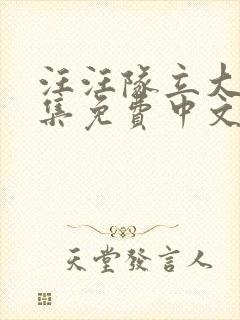 汪汪隊立大
集免費中文
天堂發言人